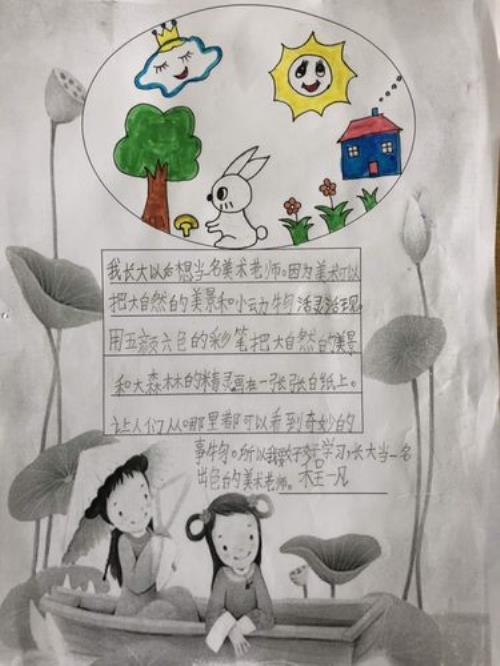 我长大以后想当名美术老师。因为美术可以
把大自然的美景和小动物活灵活现,
用五颜六色的彩笔把大自然的美景
和大森林的精灵画在一张张白纸上。
让人们从哪里都可以看到奇妙的
事物。所以我要好好学习,长大当一名
出色的美术老师。 王一凡